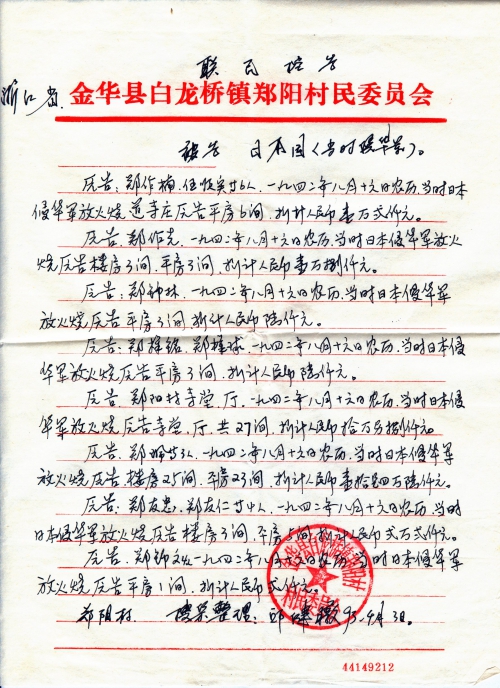 联名控告
浙江省
金华县白龙桥镇郑阳村民委员会
被告 日本国(当时侵华军)。
原告:郑作楠、任收实廿6人、一九四二年八月十六日农历,当时日本
侵华军放火烧 原告平房6间,折计人民币壹万弍仟元。
原告、郑作 、一九四二年八月十六日农历,当时日本侵华军放火
烧原告楼房3间,平房3间,折计人民币壹万捌仟元。
原告:郑钟林、一九四二年八月十六日农历,当时日本侵华军
放火烧原告平房3间,折计人民币陆仟元。
原告、郑樟铭、郑樟球、一九四二年八月十六日农历,当时日本侵
华军放火烧原告平房3间,折计人民币陆仟元。
原告 郑阳村 堂、厅、一九四二年八月十六日农历、当时日本侵
华军放火烧原告 堂、厅、共27间,折计人民币拾万 捌仟元。
原告、郑 3人、一九四二年八月十六日农历、当时日本侵华军
放火烧、原告楼房25间,平房23间,折计人民币壹拾 万陆仟元。
原告:郑友忠、郑友仁 人、一九四二年八月十六日农历、当时
日本侵华军放火烧原告楼房3间,平房5间,折计人民币弍万弍仟元。
原告、郑 一九四二年八月十六日农历、当时日本侵华军
放火烧、原告平房1间,折计人民币弍仟元。
郑阳村 整理: 95.9月3日。
44149212